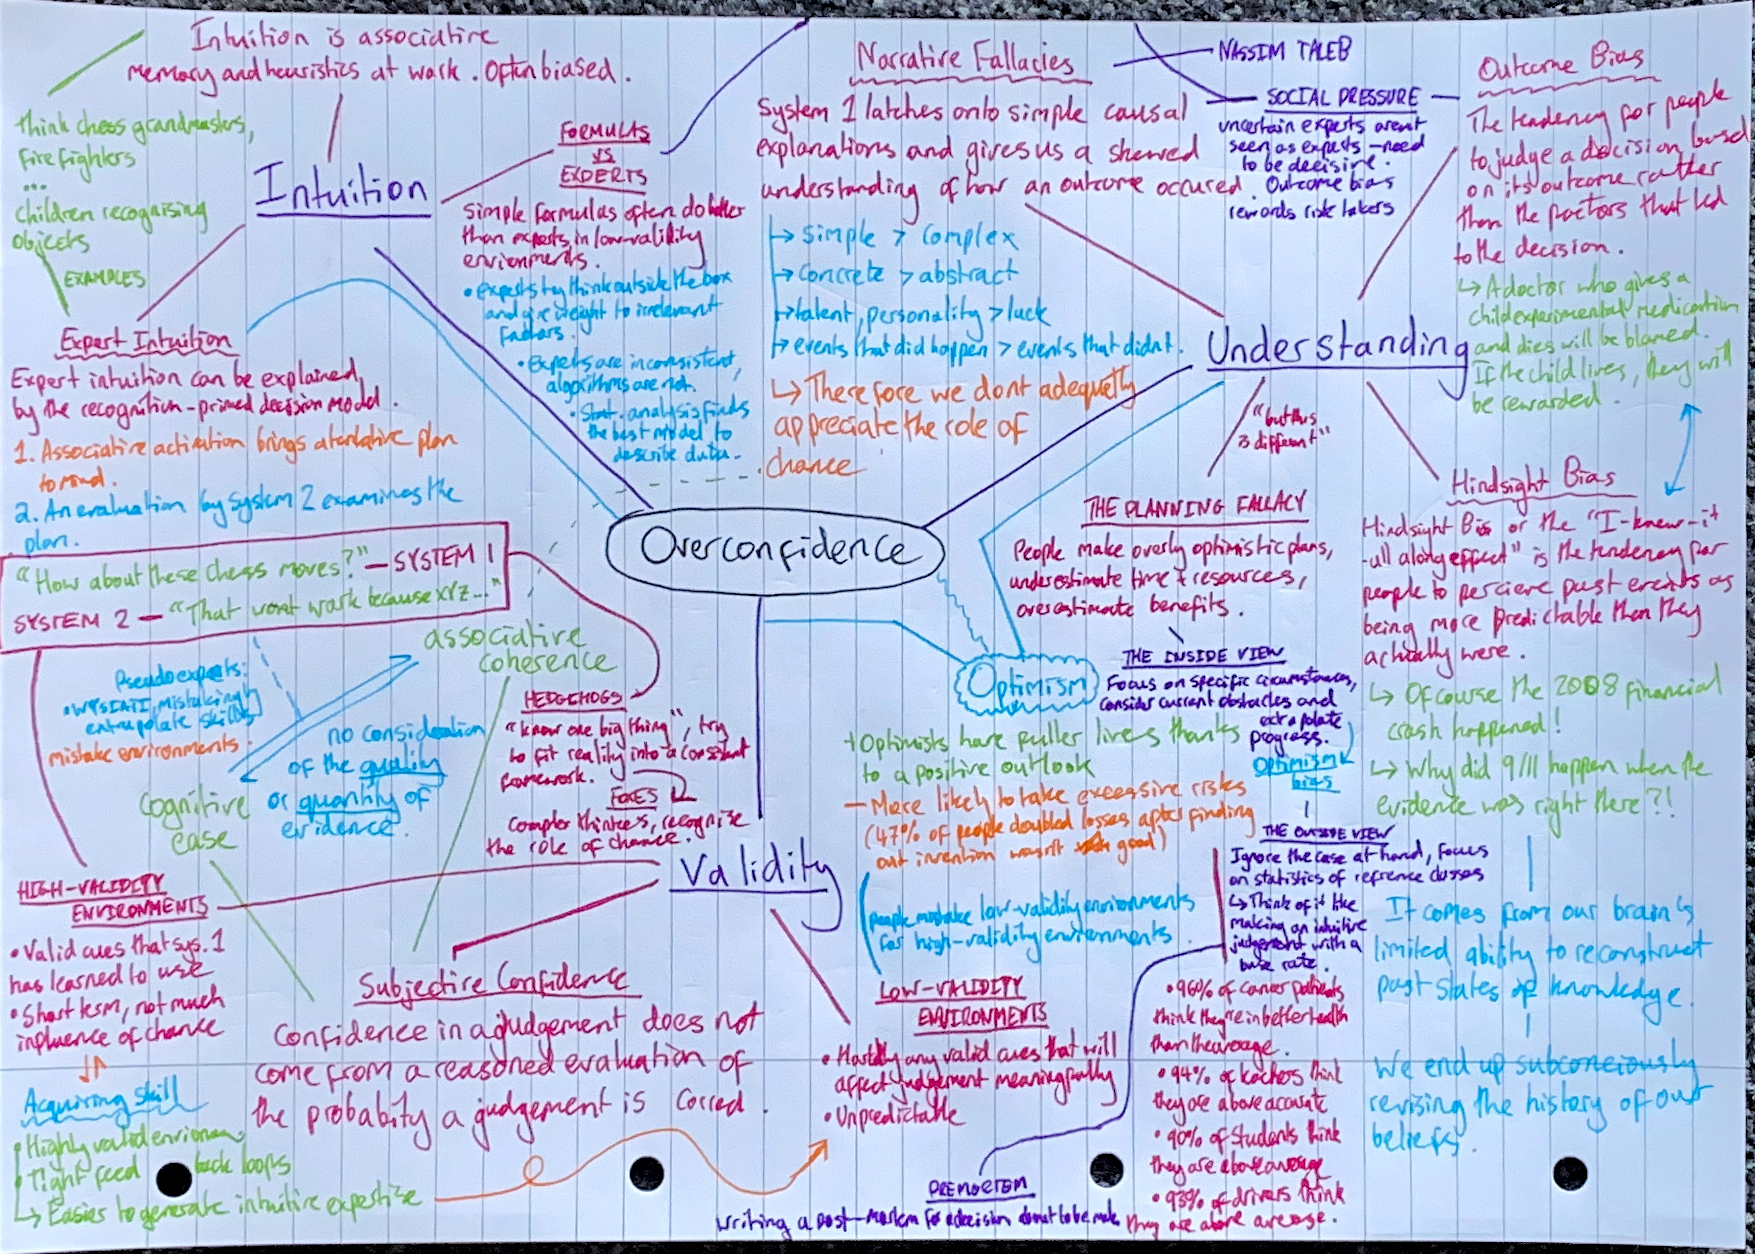 Intuition is associative
memory and heuristics at work. Often biased.
Think chess grandmasters,
fire fighters
...
children recognising
objects
EXAMPLES
Intuition
FORMULAS
VS
EXPERTS
Simple formulas often do better
than experts in low-validity
envrionments.
• experts try think outside the box
and give weight to irrelevant
factors.
• Experts are inconsistent,
algorithms are not.
• Stat. analysis finds
the best model to
describe data.
Expert Intuition
Expert intuition can be explained
by the recognition-primed decision model.
1. Associative activation brings a tentative plan
to mind.
2. An evaluation by System 2 examines the
plan.
"How about these chess moves?" — SYSTEM 1
SYSTEM 2 — "That wont work because xyz..."
Narrative Fallacies
NASSIM TALEB
System 1 latches onto simple causal
explanations and gives us a skewed
understanding of how an outcome occured
→ simple > complex
→ concrete > abstract
→ talent, personality > luck
→ events that did happen > events that didnt.
↳ Therefore we dont adequetly
appreciate the role of
chance
SOCIAL PRESSURE
uncertain experts arent
seen as experts - need
to be decisive.
Outcome bias
rewards risk takers
Outcome Bias
The tendency for people
to judge a decision based
on its outcome rather
than the factors that led
to the decision.
↳ A doctor who gives a
child experimental medication
and dies will be blamed.
If the child lives, they will
be rewarded.
Understanding
"but this
is different"
Overconfidence
THE PLANNING FALLACY
People make overly optimistic plans,
underestimate time + resources,
overestimate benefits.
THE INSIDE VIEW
Focus on specific circumstances,
consider current obstacles and
extrapolate
progress.
Optimism
bias
THE OUTSIDE VIEW
Ignore the case at hand, focus
on statistics of refrence classes
↳ Think of it like
making an intuitive
judgement with a
base rate.
Hindsight Bias
Hindsight Bias or the "I-knew-it
-all along effect" is the tendency for
people to percieve past events as
being more predictable then they
actually were.
↳ Of course the 2008 financial
crash happened!
↳ Why did 9/11 happen when the
evidence was right there?!
It comes from our brain's
limited ability to reconstruct
past states of knowledge.
We end up subconciously
revising the history of our
beliefs.
Optimism
+ Optimists have fuller lives thanks
to a positive outlook
- More likely to take excessive risks
(47% of people doubled losses after finding
out invention wasn't good)
people mistake low-validity environments
for high-validity environments.
associative
coherence
Pseudo experts:
• WYSIATI, mistaking
extrapolate skills
mistake environments.
no consideration
of the quality
or quantity of
evidence.
cognitive
ease
HEDGEHOGS
"know one big thing", try
to fit reality into a consistent
framework.
FOXES
Complex thinkers, recognize
the role of chance.
Validity
HIGH-VALIDITY
ENVIRONMENTS
• Valid cues that sys. 1
has learned to use
• Short term, not much
influence of chance
Acquiring skill
• Highly valid environ
• Tight feed back loops
↳ Easier to generate intuitive expertise
Subjective Confidence
Confidence in a judgement does not
come from a reasoned evaluation of
the probabity a judgement is correct.
LOW-VALIDITY
ENVIRONMENTS
• Hardly any valid cues that will
affect judgement meaningfully
• Unpredictable
• 96% of cancer patients
think they're in better health
than the average.
• 94% of teachers think
they are above average
• 90% of students think
they are above average
• 93% of drivers think
they are above average.
PREMORTEM
Writing a post-mortem for a decision about to be made